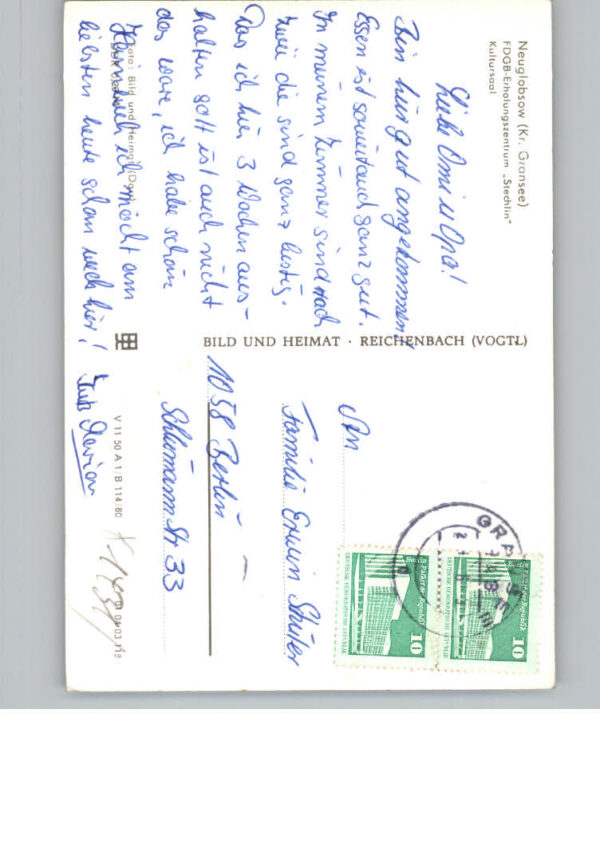 Neuglobsow (Kr. Gransee)
FDGB-Erholungszentrum „Stechlin"
Kultursaal
Liebe Omi u Opa!
Bin hier gut angekommen,
Essen ist soweit auch ganz gut.
In meinem Zimmer sind noch
zwei die sind ganz lustig.
Das ich hier 3 Wochen aus-
halten soll ist auch nicht
das ware, ich habe schon
Heimweh ich möcht am
liebsten heute schon weg hier!
Foto: Bild und Heimat
BILD UND HEIMAT · REICHENBACH (VOGTL)
V 11 50 A 1/B 114/80
An
Familie Erwin
1058 Berlin
Str. 33
Palast der Republik
DEUTSCHE DEMOKRATISCHE REPUBLIK
10
Palast der Republik
DEUTSCHE DEMOKRATISCHE REPUBLIK
10